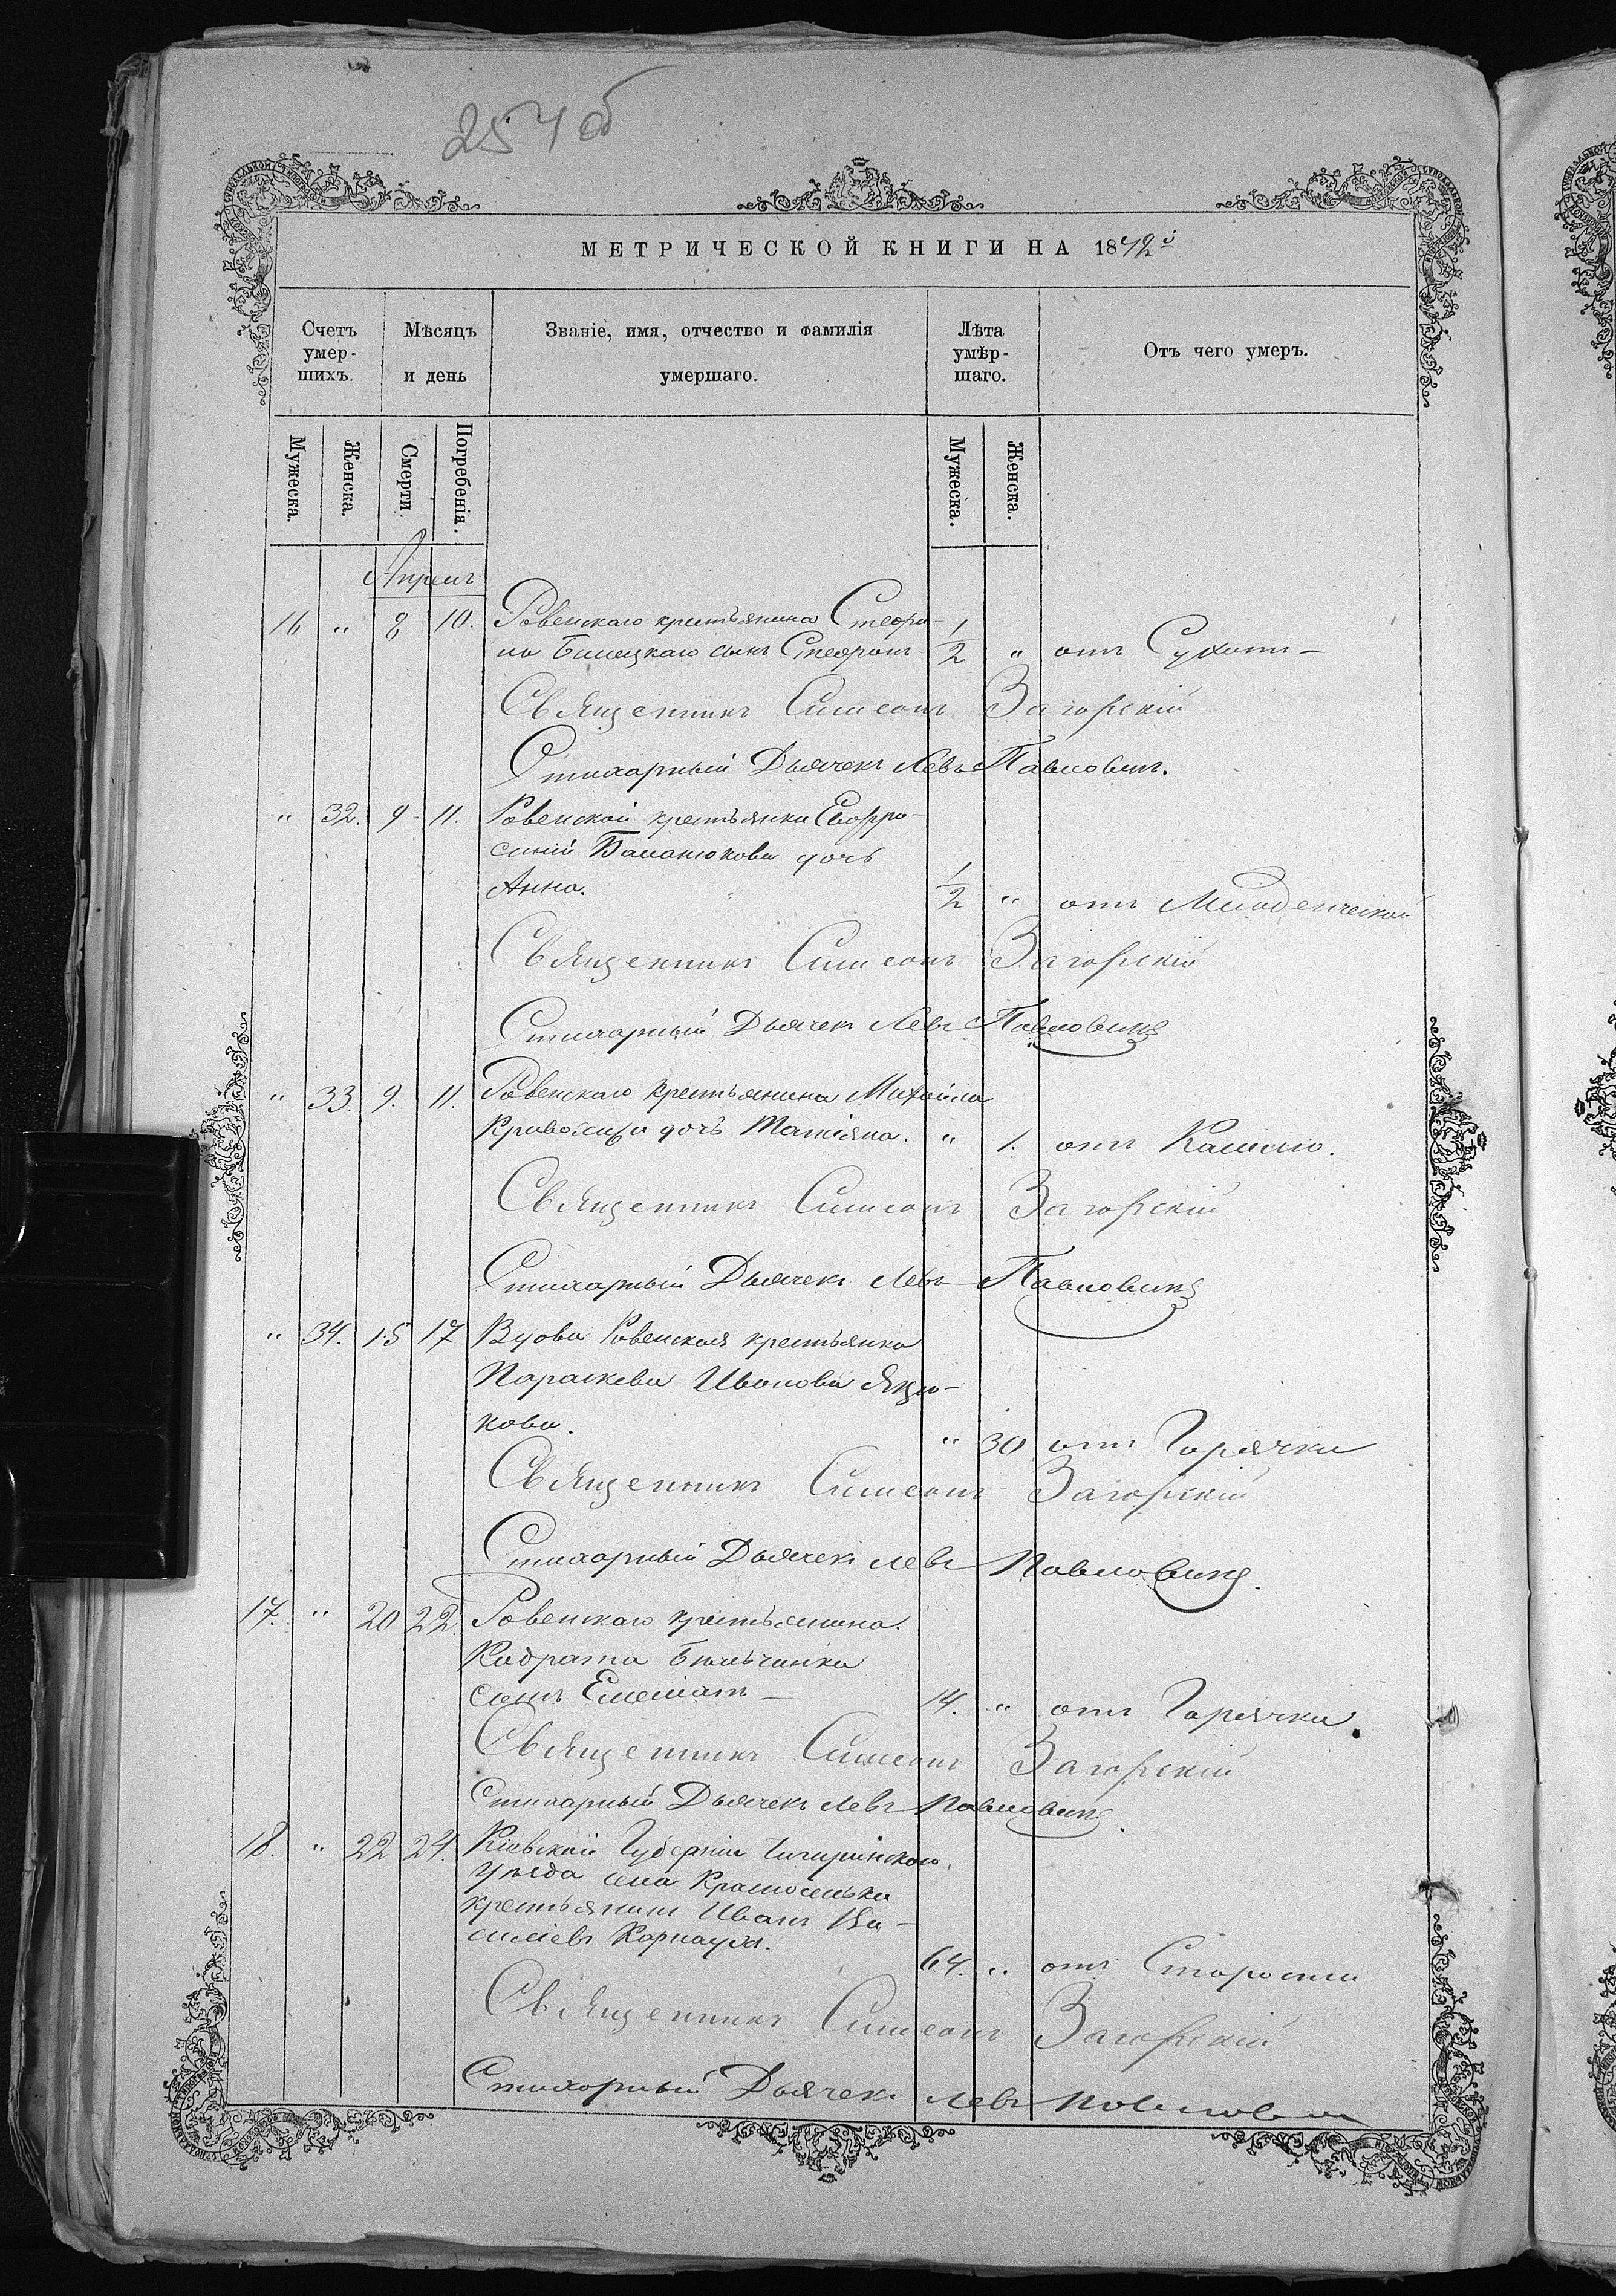 254 об
МЕТРИЧЕСКОЙ КНИГИ НА 1872й
Счетъ умер- шихъ.
Мѣсяцъ и день
Званіе, имя, отчество и фамилія умершаго.
Лѣта умѣр- шаго.
Отъ чего умеръ.
Мужеска. Женска. Смерти. Погребенія. Мужеска. Женска.
Апрель
16 " 8 10. Ровенскаго крестьянина Стефа- 1
на Билецкаго сынъ Стефанъ 2 " отъ Сухот-
Священникъ Симеонъ Загорскій
Стихарный Дьячекъ Левъ Павловичъ.
" 32. 9 11. Ровенской крестьянки Евфро-
синіи Баланюкова дочь
Анна. 1/2 " отъ Младенческой
Священникъ Симеонъ Загорскій
Стихарный Дьячекъ Левъ Павловичъ
" 33. 9. 11. Ровенскаго крестьянина Михаила
дочь Татіяна. " 1. отъ Кашлю.
Священникъ Симеонъ Загорскій
Стихарный Дьячекъ Левъ Павловичъ
" 34. 15 17 Вдова Ровенская крестьянка
Параскева Иванова Яцю-
кова. " 30 отъ Горячки
Священникъ Симеонъ Загорскій
Стихарный Дьячекъ Левъ Павловичъ.
17. " 20 22. Ровенскаго крестьянина
Кодрата
сынъ 14. " отъ Горячки.
Священникъ Симеонъ Загорскій
Стихарный Дьячекъ Левъ Павловичъ.
18. " 22 24. Кіевской Губерніи Чигиринскаго
уезда села Красноселька
крестьянинъ Иванъ Ва-
силіевъ Карнаухъ. 64. " отъ Старости
Священникъ Симеонъ Загорскій
Стихарный Дьячекъ Левъ Павловичъ